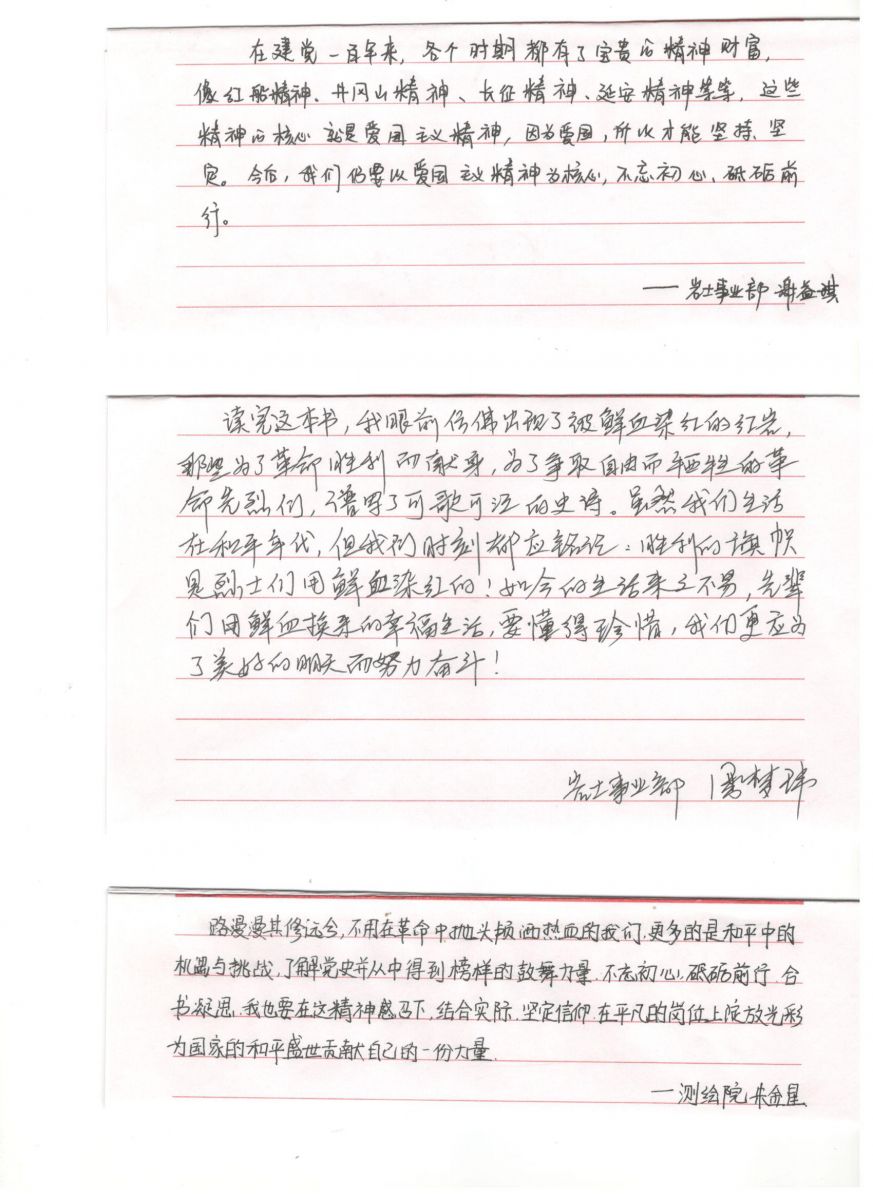 在建党一百年来，各个时期都有了宝贵的精神财富，
像红船精神、井冈山精神、长征精神、延安精神等等，这些
精神的核心就是爱国主义精神，因为爱国，所以才能坚持、坚
定。今后，我们仍要以爱国主义精神为核心，不忘初心、砥砺前
行。
——岩土事业部 谢益琪
读完这本书，我眼前仿佛出现了被鲜血染红的红岩，
那些为了革命胜利而献身，为了争取自由而牺牲的革
命先烈们，谱写了可歌可泣的史诗。虽然我们生活
在和平年代，但我们时刻都应铭记：胜利的旗帜
是烈士们用鲜血染红的！如今的生活来之不易，先辈
们用鲜血换来的幸福生活，要懂得珍惜，我们更应为
了美好的明天而努力奋斗！
岩土事业部 周梦玮
路漫漫其修远兮，不用在革命中抛头颅洒热血的我们，更多的是和平中的
机遇与挑战，了解党史并从中得到榜样的鼓舞力量，不忘初心，砥砺前行，合
书凝思，我也要在这精神感召下，结合实际，坚定信仰，在平凡的岗位上绽放光彩
为国家的和平盛世贡献自己的一份力量.
—测绘院 朱金星